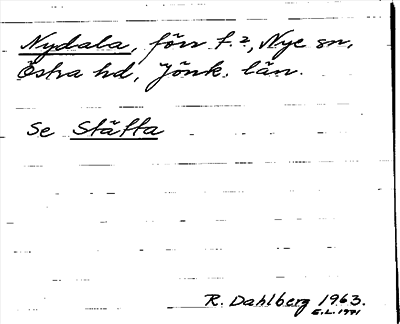 Nydala, förr f.?, Nye sn,
Östra hd, Jönk. län.
Se Stätta
R. Dahlberg 1963.
E.L. 1971